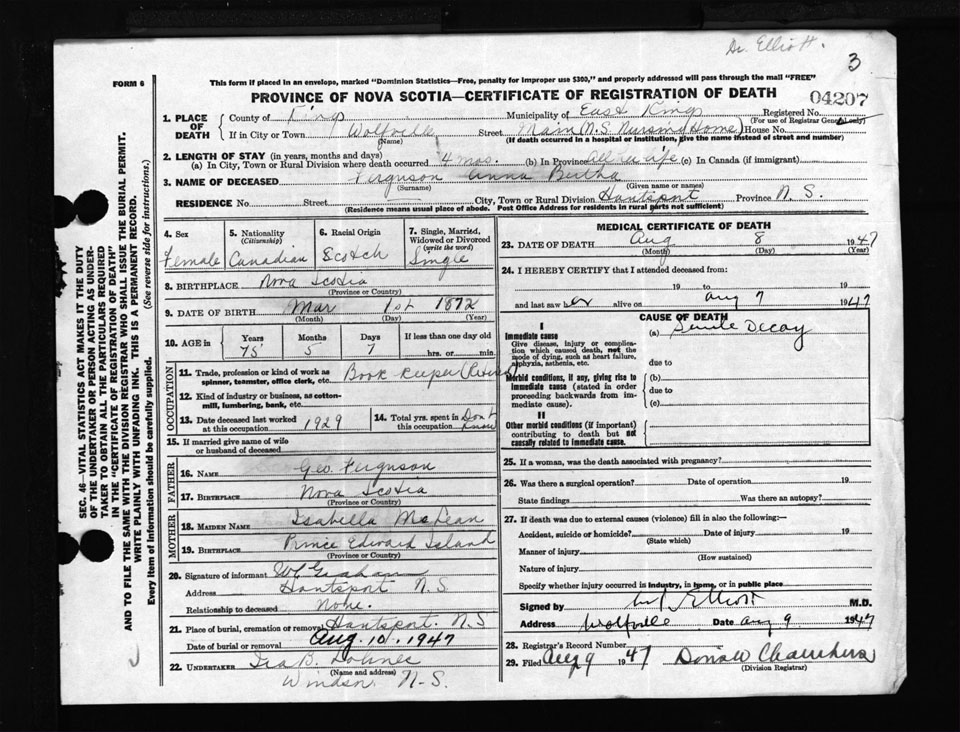 Dr. Elliott.
3
FORM 6
This form if placed in an envelope, marked "Dominion Statistics—Free, penalty for improper use $300," and properly addressed will pass through the mail "FREE"
PROVINCE OF NOVA SCOTIA—CERTIFICATE OF REGISTRATION OF DEATH
04207
1. PLACE OF DEATH
County of Kings Municipality of East Kings Registered No.
(For use of Registrar General only)
If in City or Town Wolfville Street Main (N.S. Nursing Home) House No.
(Name) (If death occurred in a hospital or institution, give the name instead of street and number)
2. LENGTH OF STAY (in years, months and days)
(a) In City, Town or Rural Division where death occurred 4 mos. (b) In Province All her life (c) In Canada (if immigrant)
3. NAME OF DECEASED Ferguson Anna Bertha
(Surname) (Given name or names)
RESIDENCE No. Street City, Town or Rural Division Hantsport Province N.S.
(Residence means usual place of abode. Post Office Address for residents in rural parts not sufficient)
4. Sex
Female
5. Nationality
(Citizenship)
Canadian
6. Racial Origin
Scotch
7. Single, Married, Widowed or Divorced
(write the word)
Single
8. BIRTHPLACE Nova Scotia
(Province or Country)
9. DATE OF BIRTH Mar 1st 1872
(Month) (Day) (Year)
10. AGE in
Years Months Days If less than one day old
75 5 7 hrs. or min.
OCCUPATION
11. Trade, profession or kind of work as spinner, teamster, office clerk, etc. Book keeper (Retired)
12. Kind of industry or business, as cotton-mill, lumbering, bank, etc.
13. Date deceased last worked at this occupation 1929
14. Total yrs. spent in this occupation Don't Know
15. If married give name of wife or husband of deceased
FATHER
16. NAME Geo. Ferguson
17. BIRTHPLACE Nova Scotia
(Province or Country)
MOTHER
18. MAIDEN NAME Isabella McLean
19. BIRTHPLACE Prince Edward Island
(Province or Country)
20. Signature of informant W Graham
Address Hantsport N.S
Relationship to deceased None.
21. Place of burial, cremation or removal Hantsport. N.S
Date of burial or removal Aug. 10. 1947
22. UNDERTAKER Ira B. Lohnes
(Name and address)
Windsor N.S.
MEDICAL CERTIFICATE OF DEATH
23. DATE OF DEATH Aug 8 1947
(Month) (Day) (Year)
24. I HEREBY CERTIFY that I attended deceased from:
19 to 19
and last saw her alive on Aug 7 1947
CAUSE OF DEATH
I
Immediate cause
Give disease, injury or complication which caused death, not the mode of dying, such as heart failure, asphyxia, asthenia, etc.
(a) Senile Decay
due to
Morbid conditions, if any, giving rise to immediate cause (stated in order proceeding backwards from immediate cause).
(b)
due to
(c)
II
Other morbid conditions (if important) contributing to death but not causally related to immediate cause.
25. If a woman, was the death associated with pregnancy?
26. Was there a surgical operation? Date of operation 19
State findings Was there an autopsy?
27. If death was due to external causes (violence) fill in also the following:—
Accident, suicide or homicide? Date of injury 19
(State which)
Manner of injury
(How sustained)
Nature of injury
Specify whether injury occurred in industry, in home, or in public place
Signed by Elliott M.D.
Address Wolfville Date Aug 9 1947
28. Registrar's Record Number
29. Filed Aug 9 1947 Donald Chambers
(Division Registrar)
SEC. 46—VITAL STATISTICS ACT MAKES IT THE DUTY
OF THE UNDERTAKER OR PERSON ACTING AS UNDER-
TAKER TO OBTAIN ALL THE PARTICULARS REQUIRED
IN THE "CERTIFICATE OF REGISTRATION OF DEATH"
AND TO FILE THE SAME WITH THE DIVISION REGISTRAR WHO SHALL ISSUE THE BURIAL PERMIT.
WRITE PLAINLY WITH UNFADING INK. THIS IS A PERMANENT RECORD.
Every item of information should be carefully supplied. (See reverse side for instructions.)